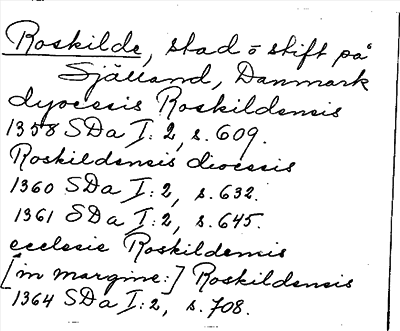 Roskilde, stad o stift på
Själland, Danmark
dyocesis Roskildensis
1358 SDa I:2, s. 609.
Roskildensis diocesis
1360 SDa I:2, s. 632.
1361 SDa I:2, s. 645.
ecclesie Roskildensis
[in margine:] Roskildensis
1364 SDa I:2, s. 708.